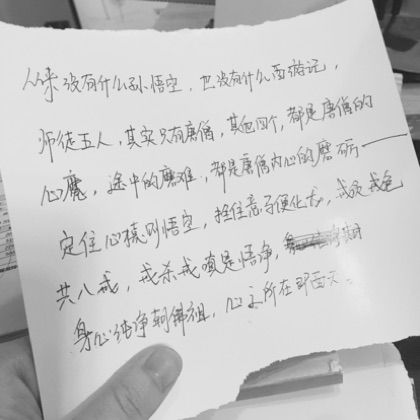 从来没有什么孙悟空，也没有什么西游记，
师徒五人，其实只有唐僧，其四个，都是唐僧的
心魔，途中的磨难，都是唐僧内心的磨砺——
定住心猿则悟空，拴住意马便化龙，戒戒色
共八戒，戒杀戒嗔是悟净，
身心纯净朝佛祖，心之所在即西天。